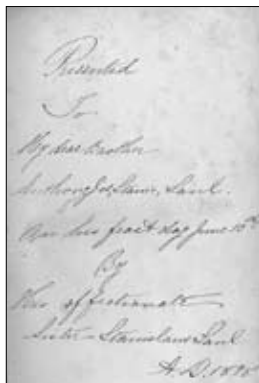 Presented
To
My dear Brother
Anthony Stanis, Saul.
Near his feast day June 13th
By
His affectionate
Sister – Stanislaus Saul
A.D. 1898